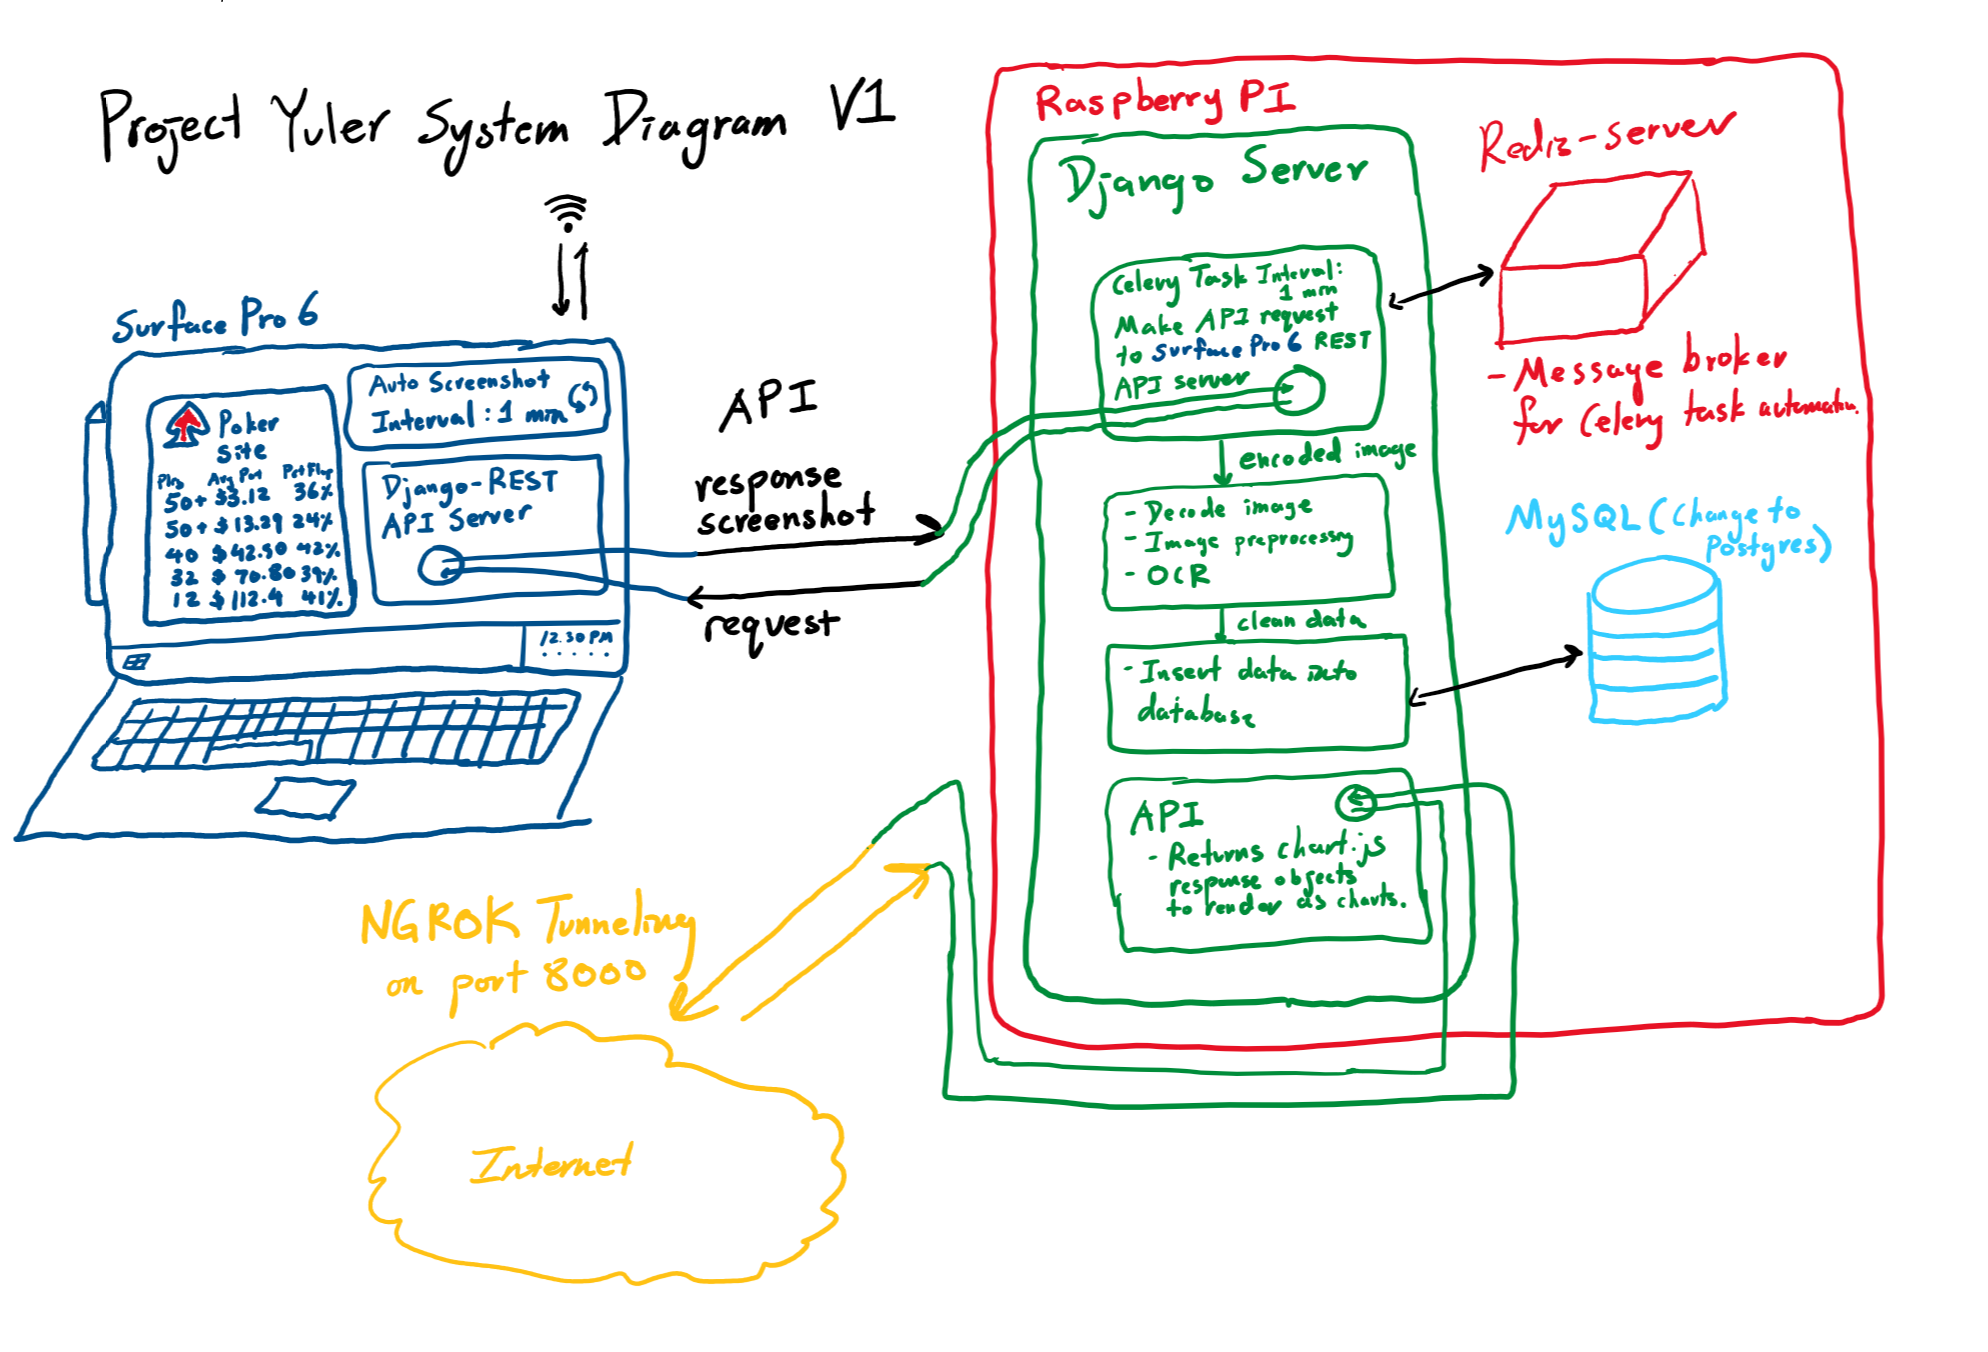 Project Yuler System Diagram V1
Surface Pro 6
Poker
Site
Plrs Avg Pot Pct Flop
50+ $3.12 36%
50+ $13.29 24%
40 $42.50 42%
32 $70.80 39%
12 $112.4 41%
Auto Screenshot
Interval: 1 min
Django-REST
API Server
12.30 PM
API
response
screenshot
request
Raspberry PI
Django Server
Celery Task Interval:
1 min
Make API request
to Surface Pro 6 REST
API server
encoded image
- Decode image
- Image preprocessing
- OCR
clean data
- Insert data into
database
API
- Returns chart.js
response objects
to render as charts.
Redis-server
- Message broker
for Celery task automation.
MySQL (Change to
Postgres)
NGROK Tunneling
on port 8000
Internet